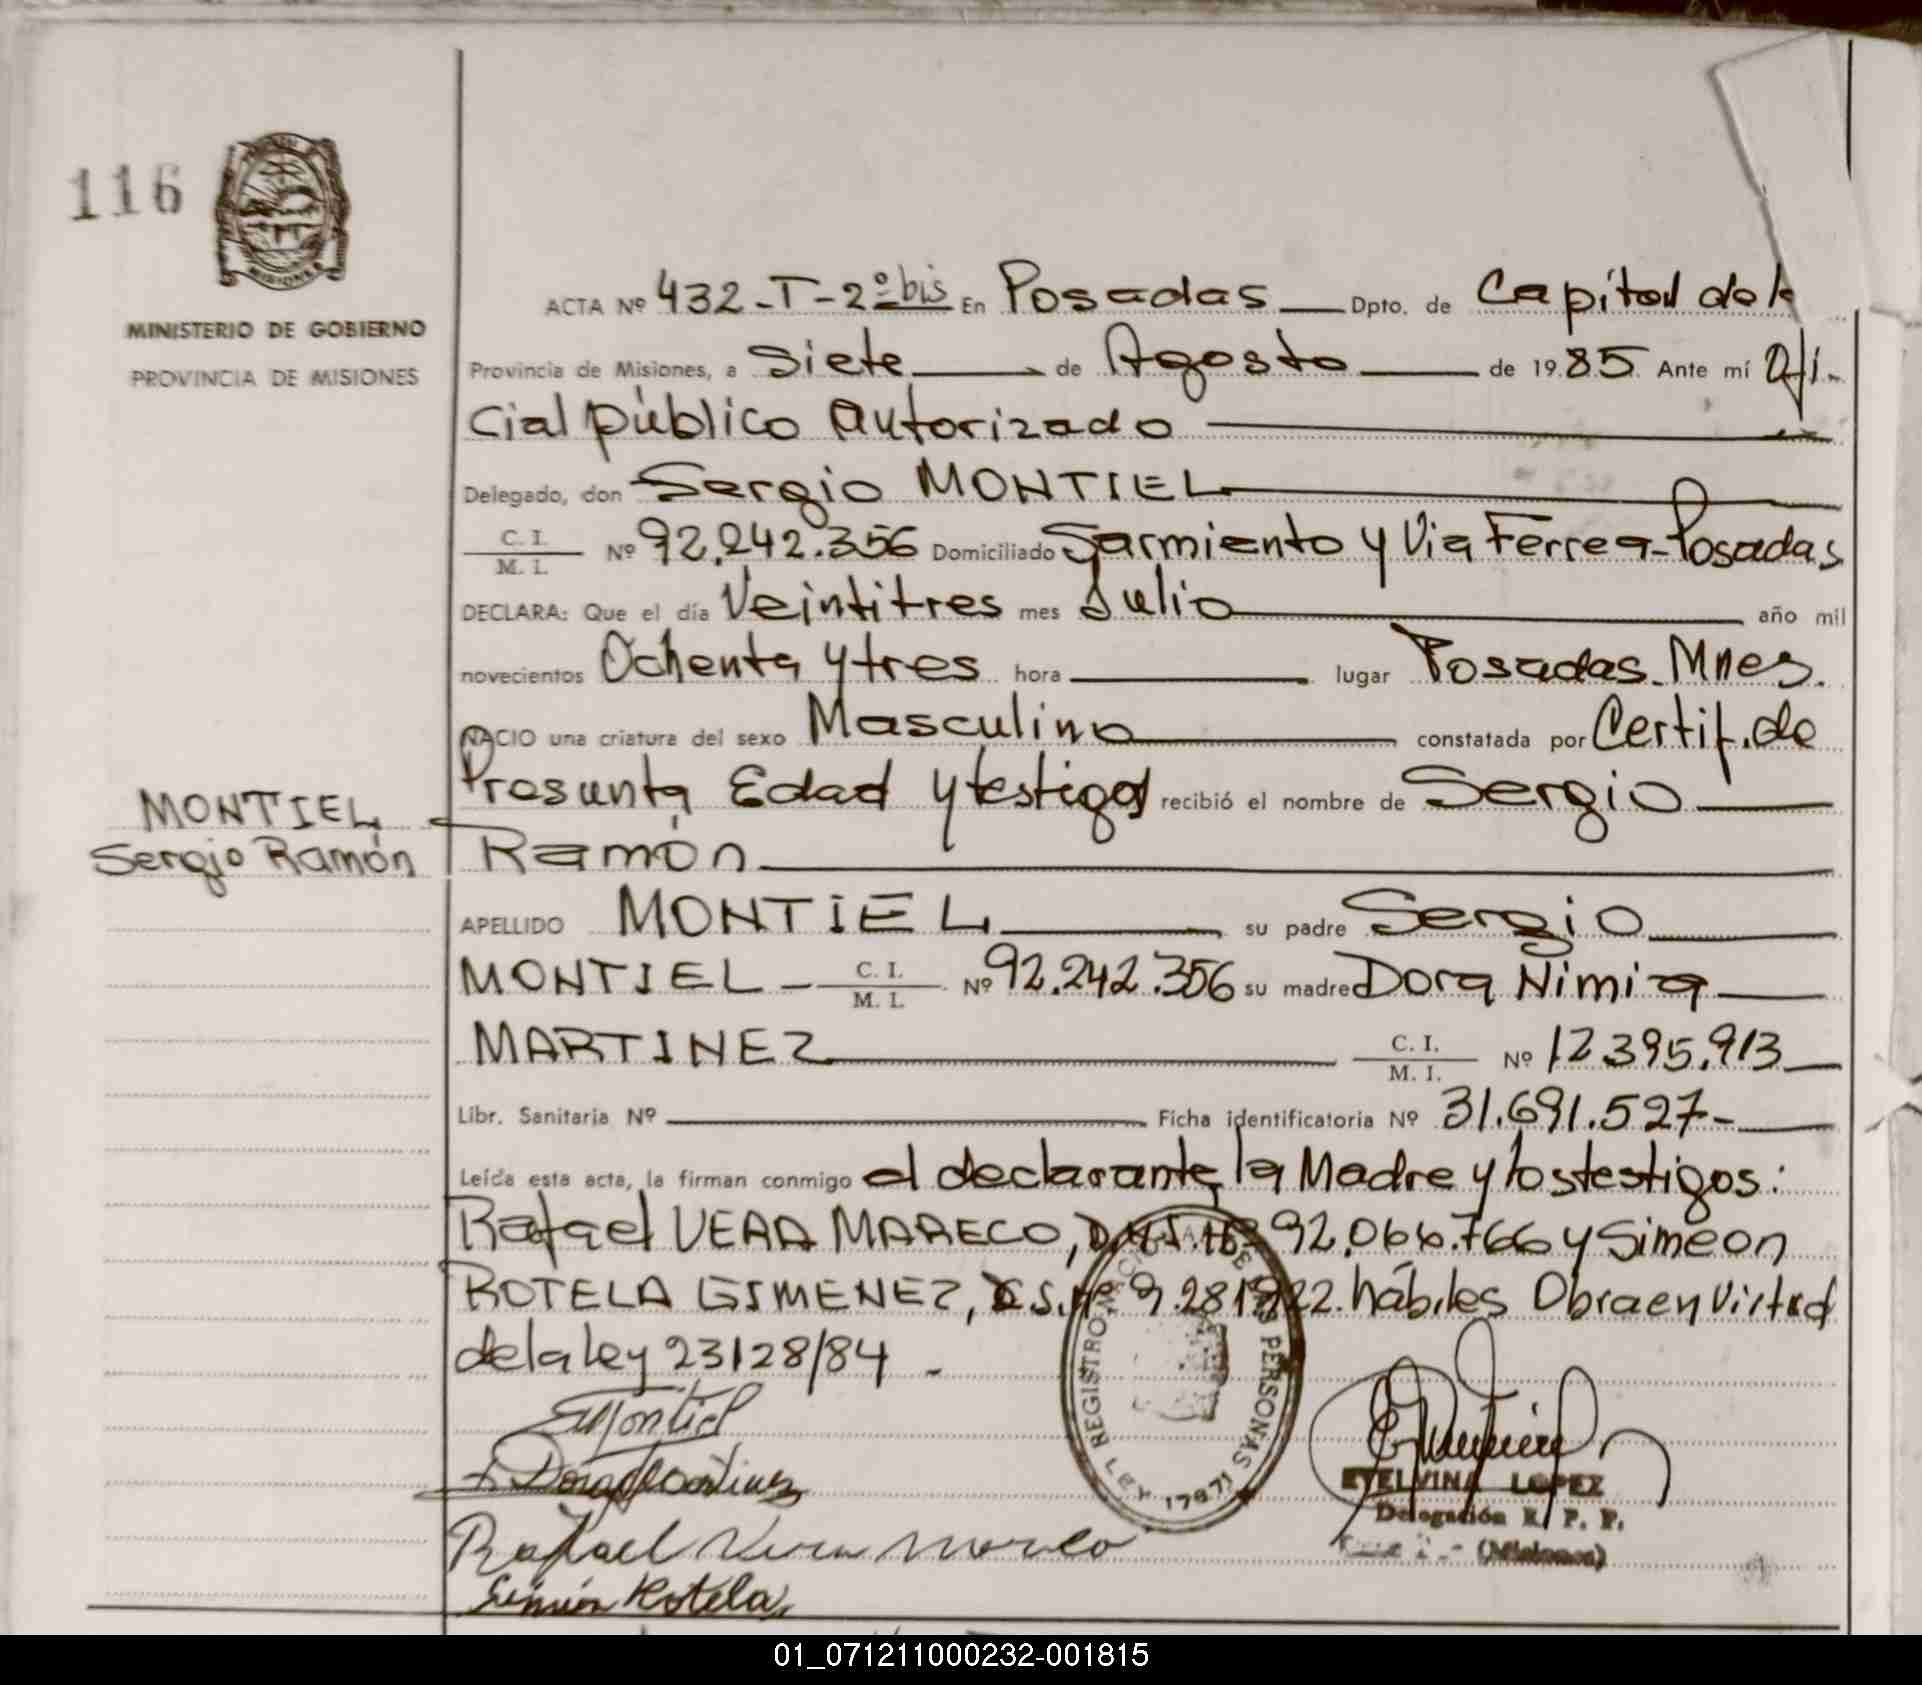 116
MISIONES
MINISTERIO DE GOBIERNO
PROVINCIA DE MISIONES
ACTA Nº 432-T-2º bis En Posadas Dpto. de Capital de la
Provincia de Misiones, a Siete de Agosto de 1985 Ante mí Ofi-
cial público Autorizado
Delegado, don Sergio MONTIEL
C. I.
M. I. Nº 92.242.356 Domiciliado Sarmiento y Via Ferrea-Posadas
DECLARA: Que el día Veintitres mes Julio año mil
novecientos Ochenta y tres hora lugar Posadas. Mnes.
NACIO una criatura del sexo Masculino constatada por Certif. de
Presunta Edad y testigos recibió el nombre de Sergio
Ramón
MONTIEL
Sergio Ramón
APELLIDO MONTIEL su padre Sergio
MONTIEL - C. I.
M. I. Nº 92.242.356 su madre Dora Nimia
MARTINEZ C. I.
M. I. Nº 12.395.913
Libr. Sanitaria Nº Ficha identificatoria Nº 31.691.527-
Leída esta acta, la firman conmigo el declarante, la Madre y los testigos:
Rafael VERA MARECO, 92.066.766 y Simeon
ROTELA GIMENEZ, 9.281.922. hábiles Obra en Virtud
de la ley 23128/84 -
REGISTRO NACIONAL DE LAS PERSONAS
LEY 17671
SMontiel
Dora Martinez
Rafael Vera Mareco
Simeón Rotela
ETELVINA LOPEZ
Delegación R. P. P.
(Misiones)
01_071211000232-001815